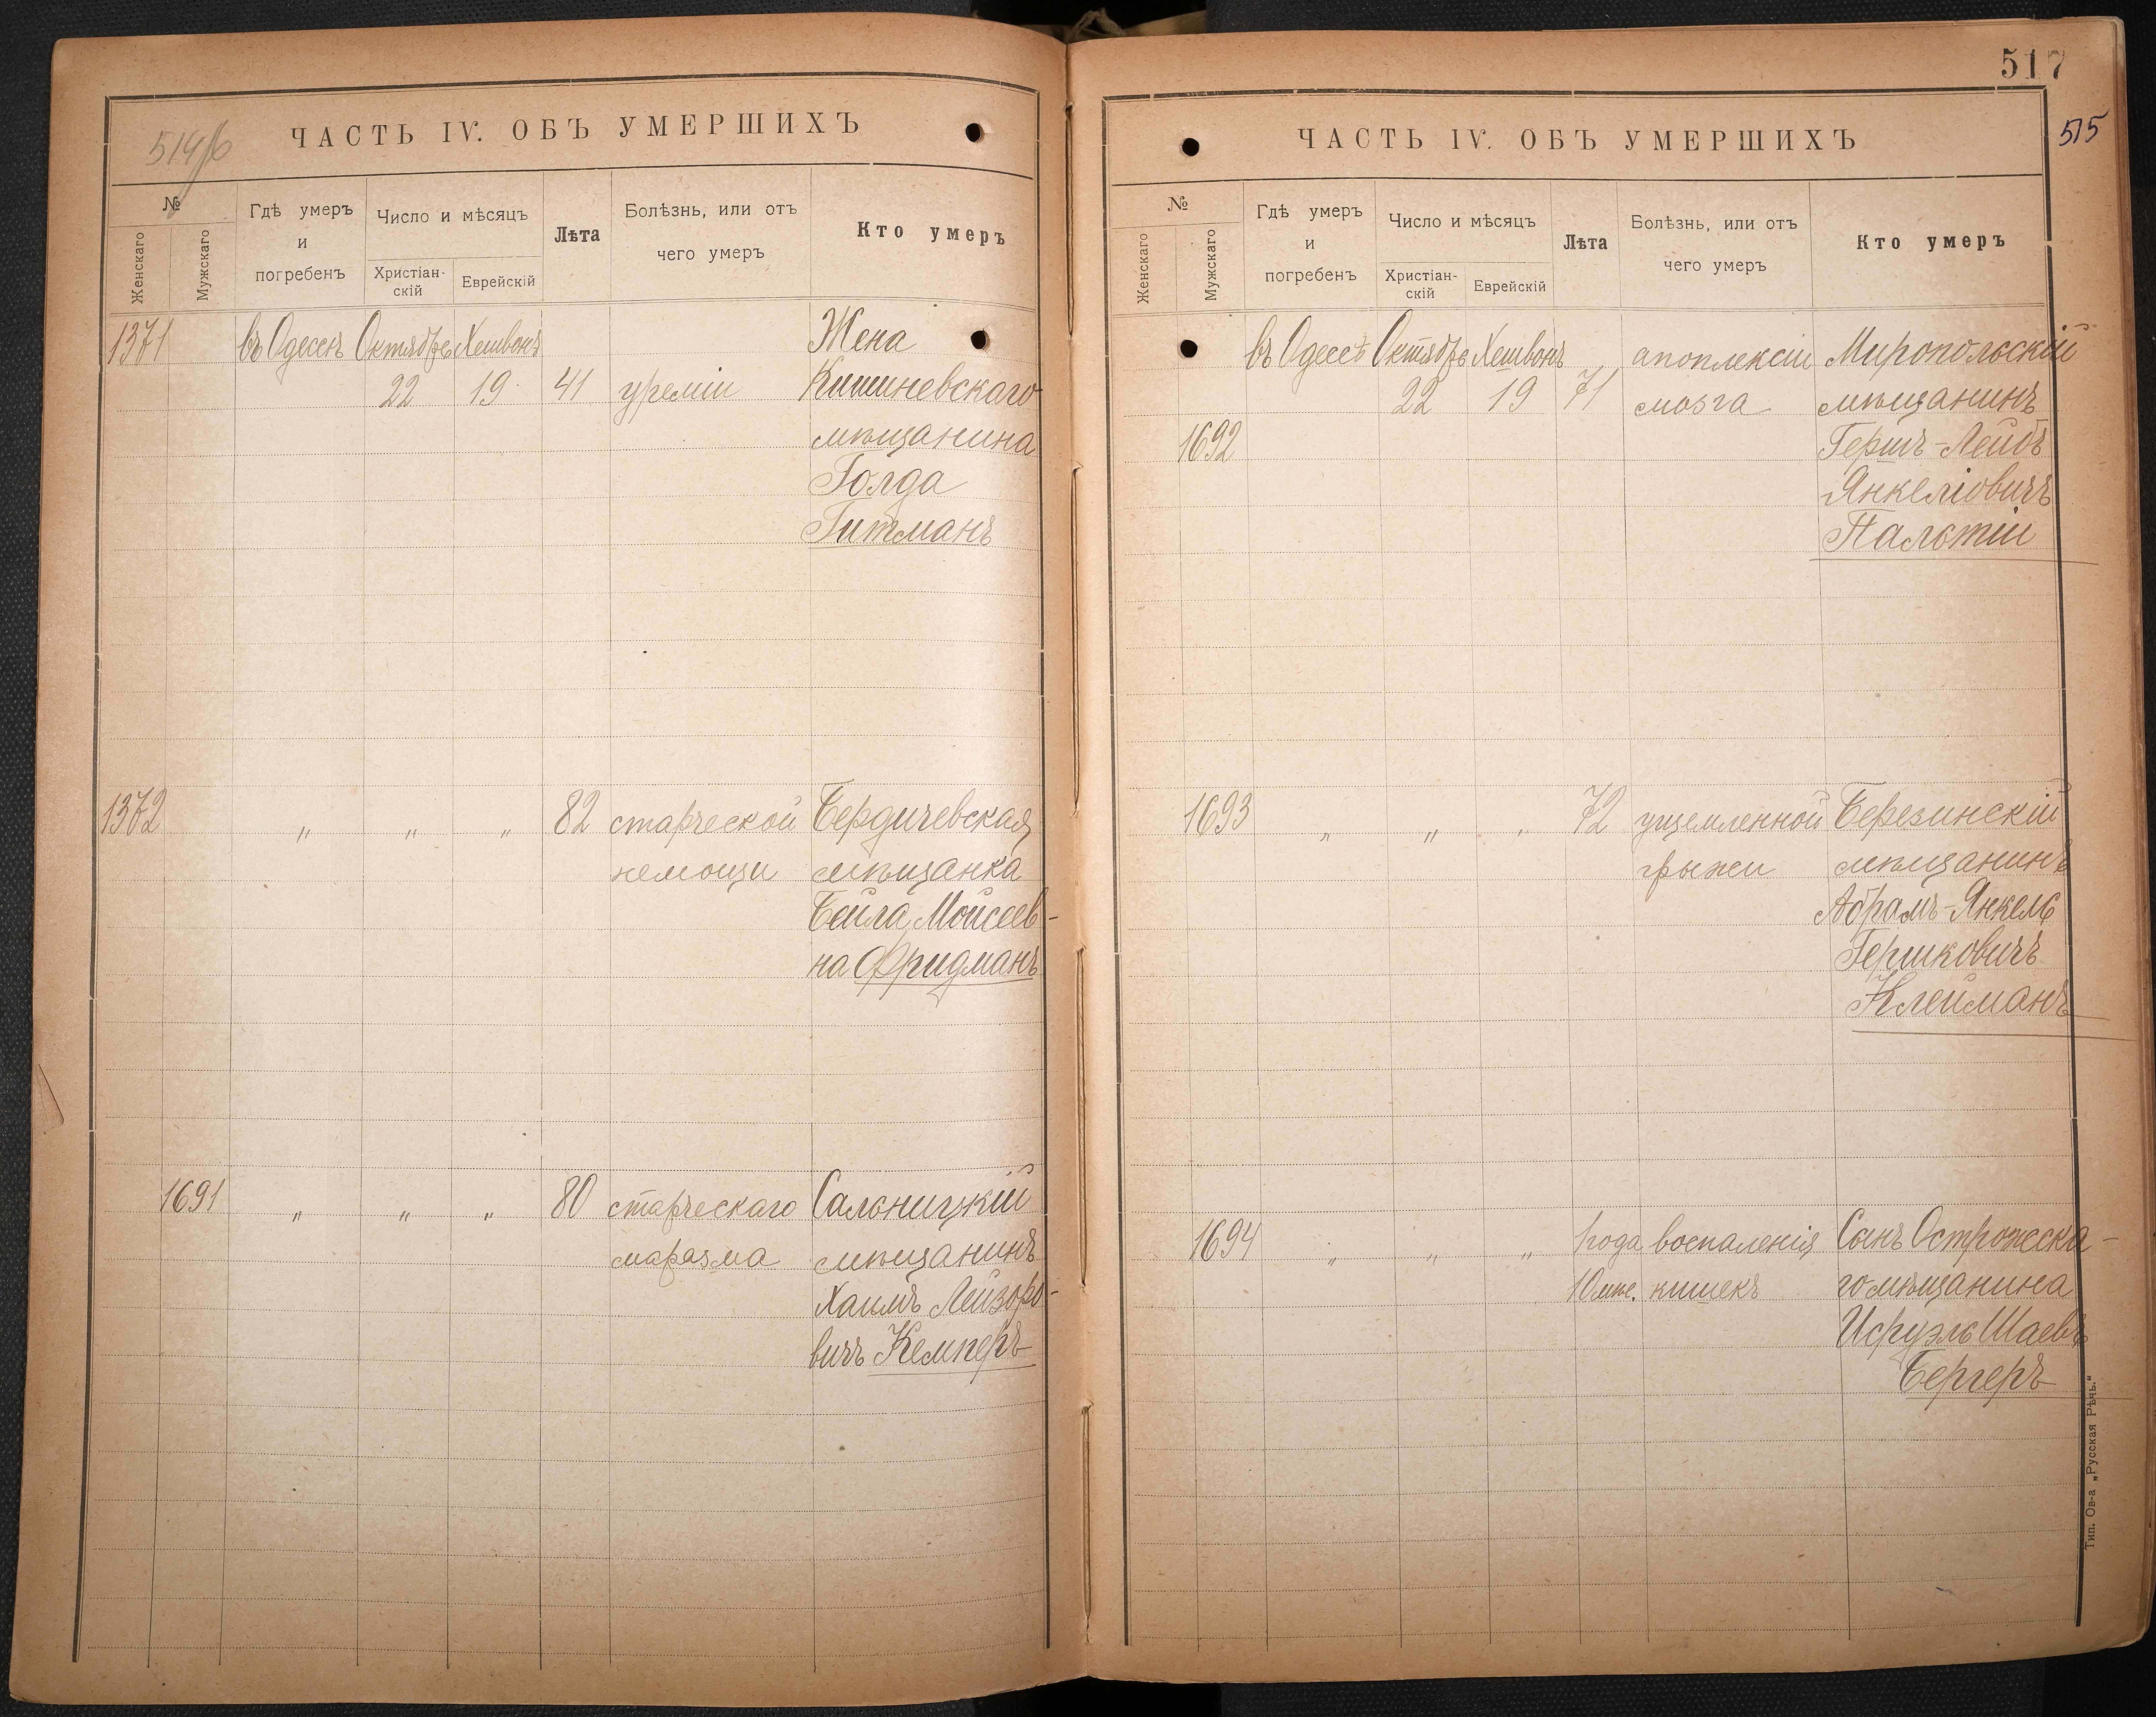 514/б
ЧАСТЬ IV. ОБЪ УМЕРШИХЪ
№
Женскаго
Мужскаго
Гдѣ умеръ
и
погребенъ
Число и мѣсяцъ
Христіан-
скій
Еврейскій
Лѣта
Болѣзнь, или отъ
чего умеръ
Кто умеръ
1371 въ Одессѣ Октябрь Хешвонъ Жена
22 19 41 уреміи Кишиневскаго
мѣщанина
Голда
Гитманъ
1372 " " " 82 старческой Бердичевская
немощи мѣщанка
Бейла Мойсеев-
на Фридманъ
1691 " " " 80 старческаго Сальницкій
маразма мѣщанинъ
Хаимъ Лейзоро-
вичъ Кемперъ
517
515
ЧАСТЬ IV. ОБЪ УМЕРШИХЪ
№
Женскаго
Мужскаго
Гдѣ умеръ
и
погребенъ
Число и мѣсяцъ
Христіан-
скій
Еврейскій
Лѣта
Болѣзнь, или отъ
чего умеръ
Кто умеръ
въ Одессѣ Октябрь Хешвонъ апоплексіи Миропольскій
22 19 71 мозга мѣщанинъ
1692 Гершъ-Лейбъ
Янкеліовичъ
Пальтіи
1693 " " " 72 ущемленной Березинскій
грыжи мѣщанинъ
Абрамъ-Янкель
Гершковичъ
Клейманъ
1694 " " " 1 года воспаленія Сынъ Острожска-
10 мѣс. кишекъ го мѣщанина
Исруэль Шаевъ
Бергеръ
Тип. Ов-а „Русская Рѣчь."